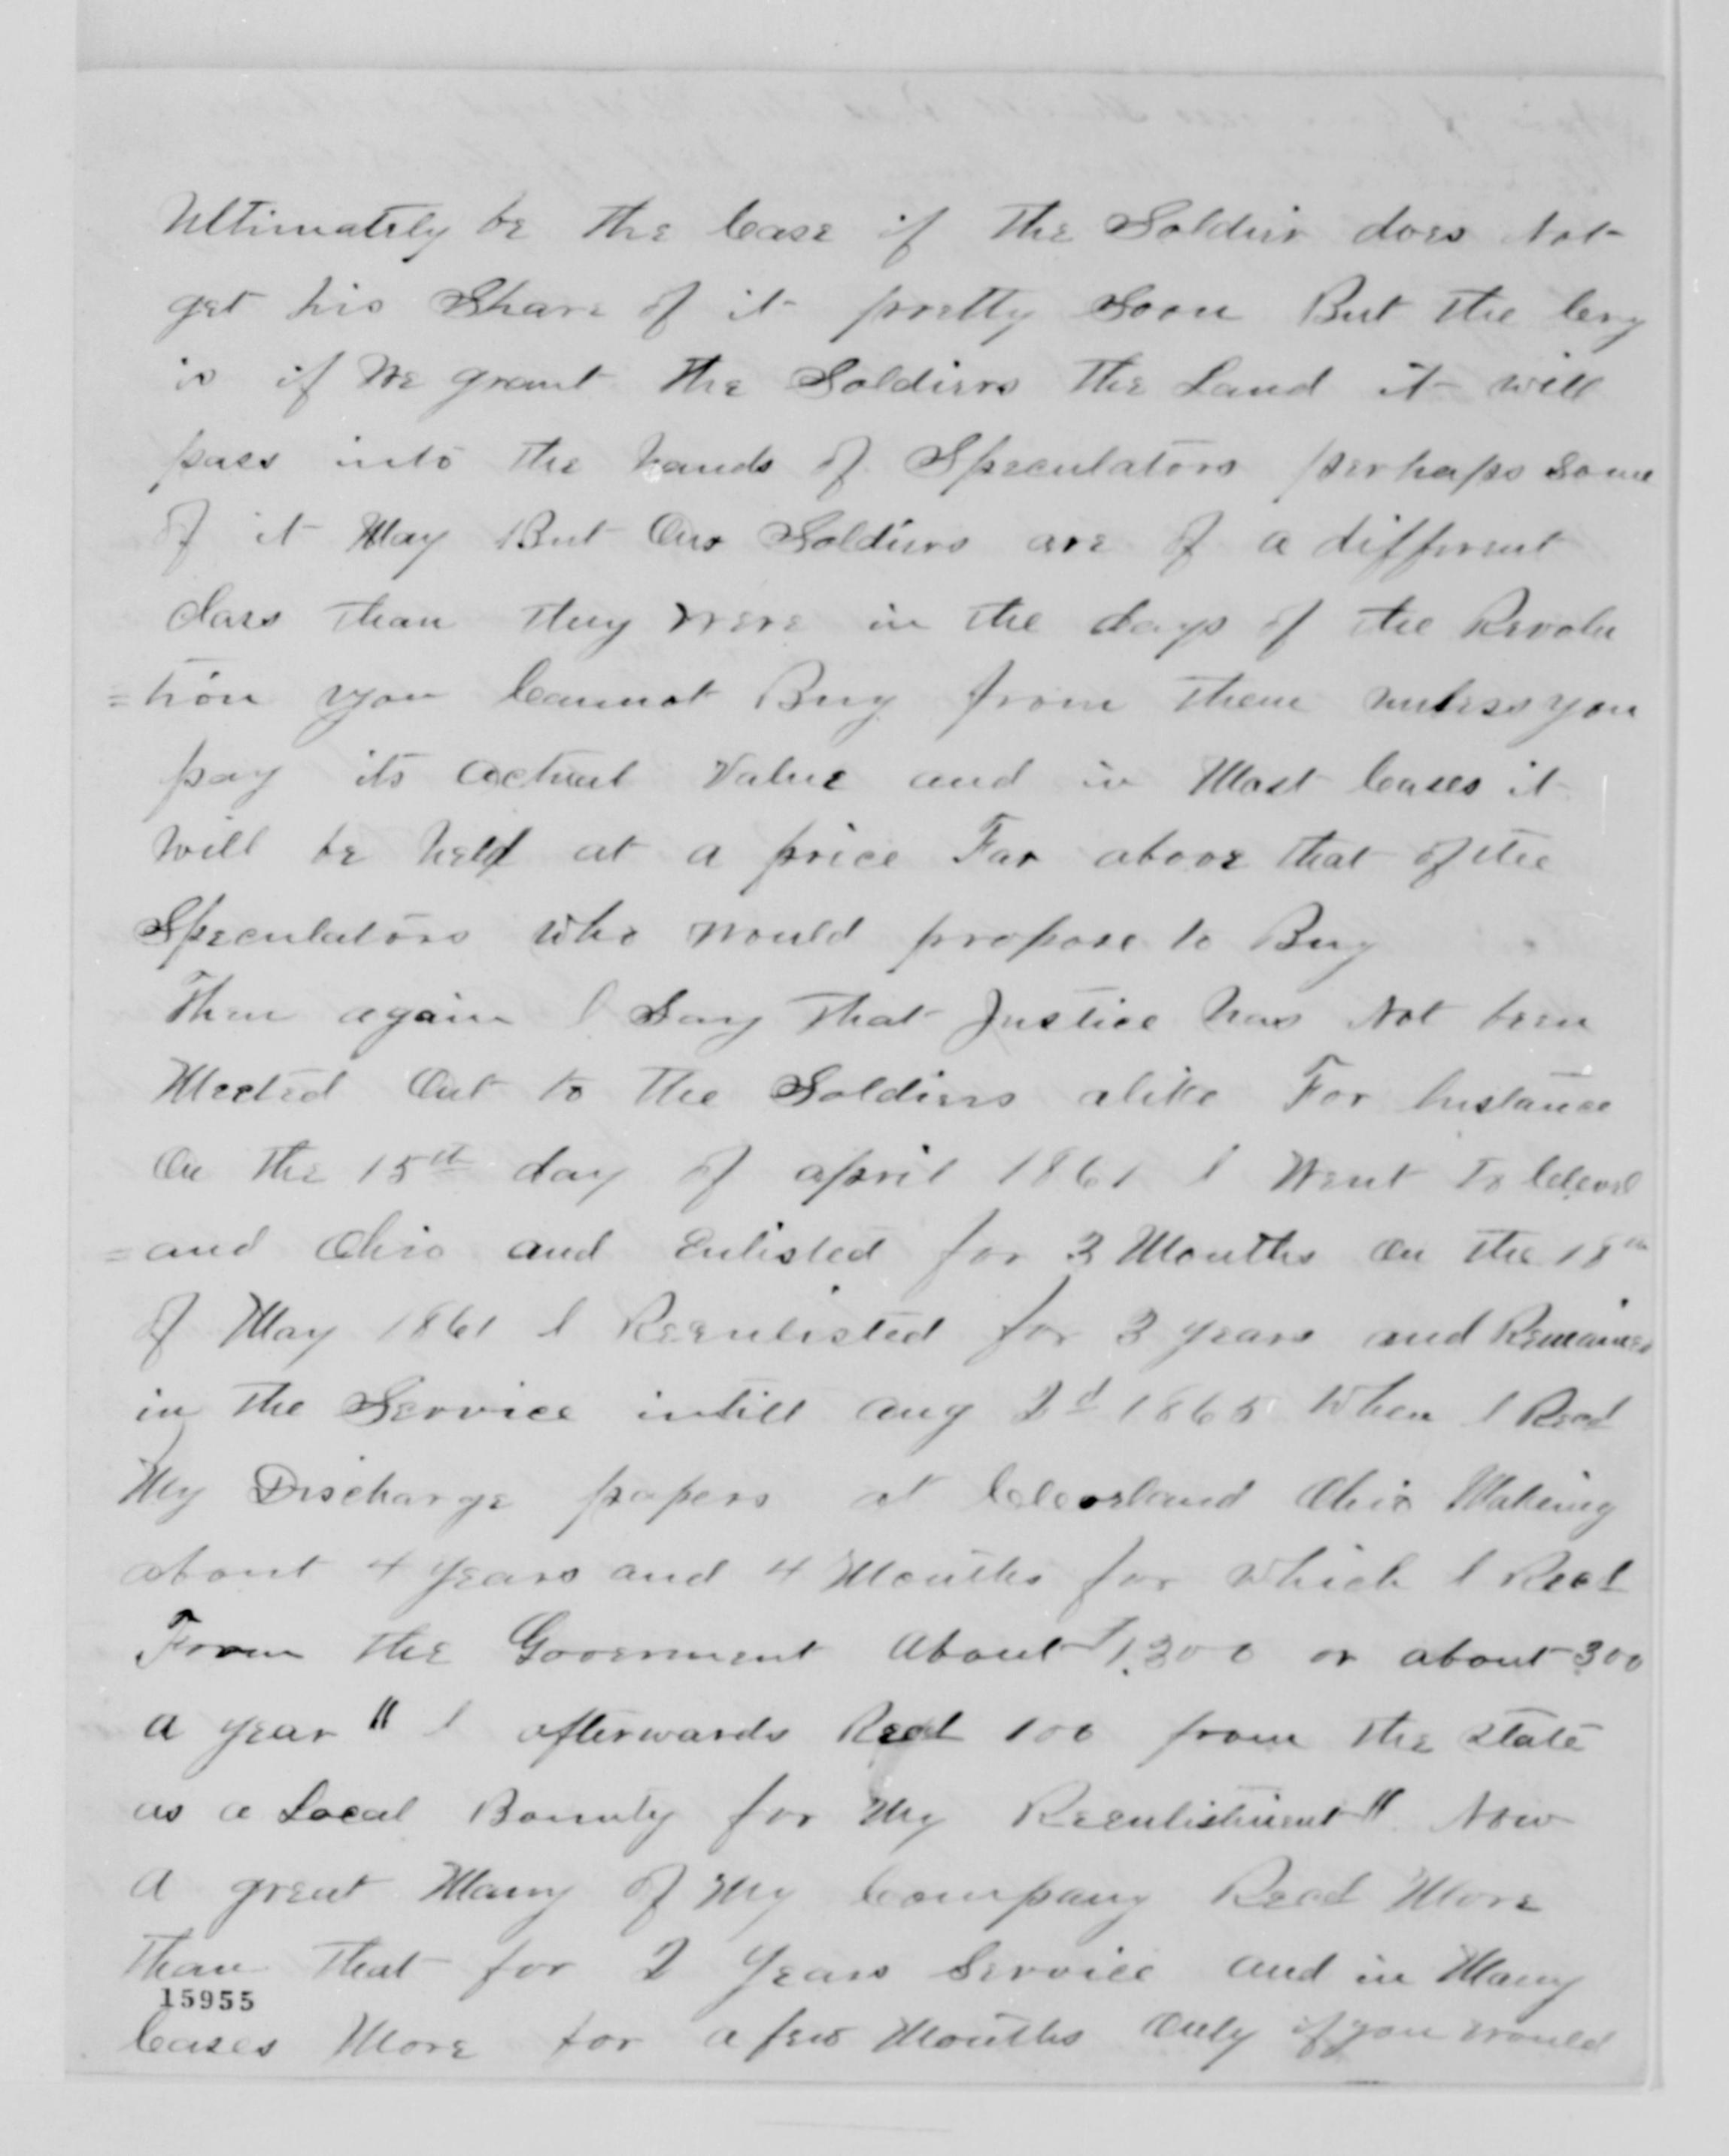 Ultimately be the Case if the Soldier does Not
get his Share of it pretty Soon But the Cry
is if We grant the Soldiers the Land it will
pass into the hands of Speculators perhaps some
of it May But Our Soldiers are of a different
class than they were in the days of the Revolu
=tion you Cannot Buy from them unless you
pay its actual Value and in Most Cases it
Will be held at a price Far above that of the
Speculators who would propose to Buy
Then again I Say that Justice has Not been
Meeted Out to the Soldiers alike For Instance
On the 15th day of april 1861 I Went to Clevel
=and Ohio and Enlisted for 3 Months On the 18th
of May 1861 I Reenlisted for 3 years and Remained
in the Service intill Aug 2d 1865 When I Recd
My Discharge papers at Cleveland Ohio Making
about 4 years and 4 Months for which I Recd
From the Goverment About $1,300 or about 300
a year " I afterwards Recd 100 from the State
as a Local Bounty for My Reenlistment " Now
A great Many of My Company Recd More
Than that for 2 Years Service and in Many
15955
Cases More for a few Months Only if you would